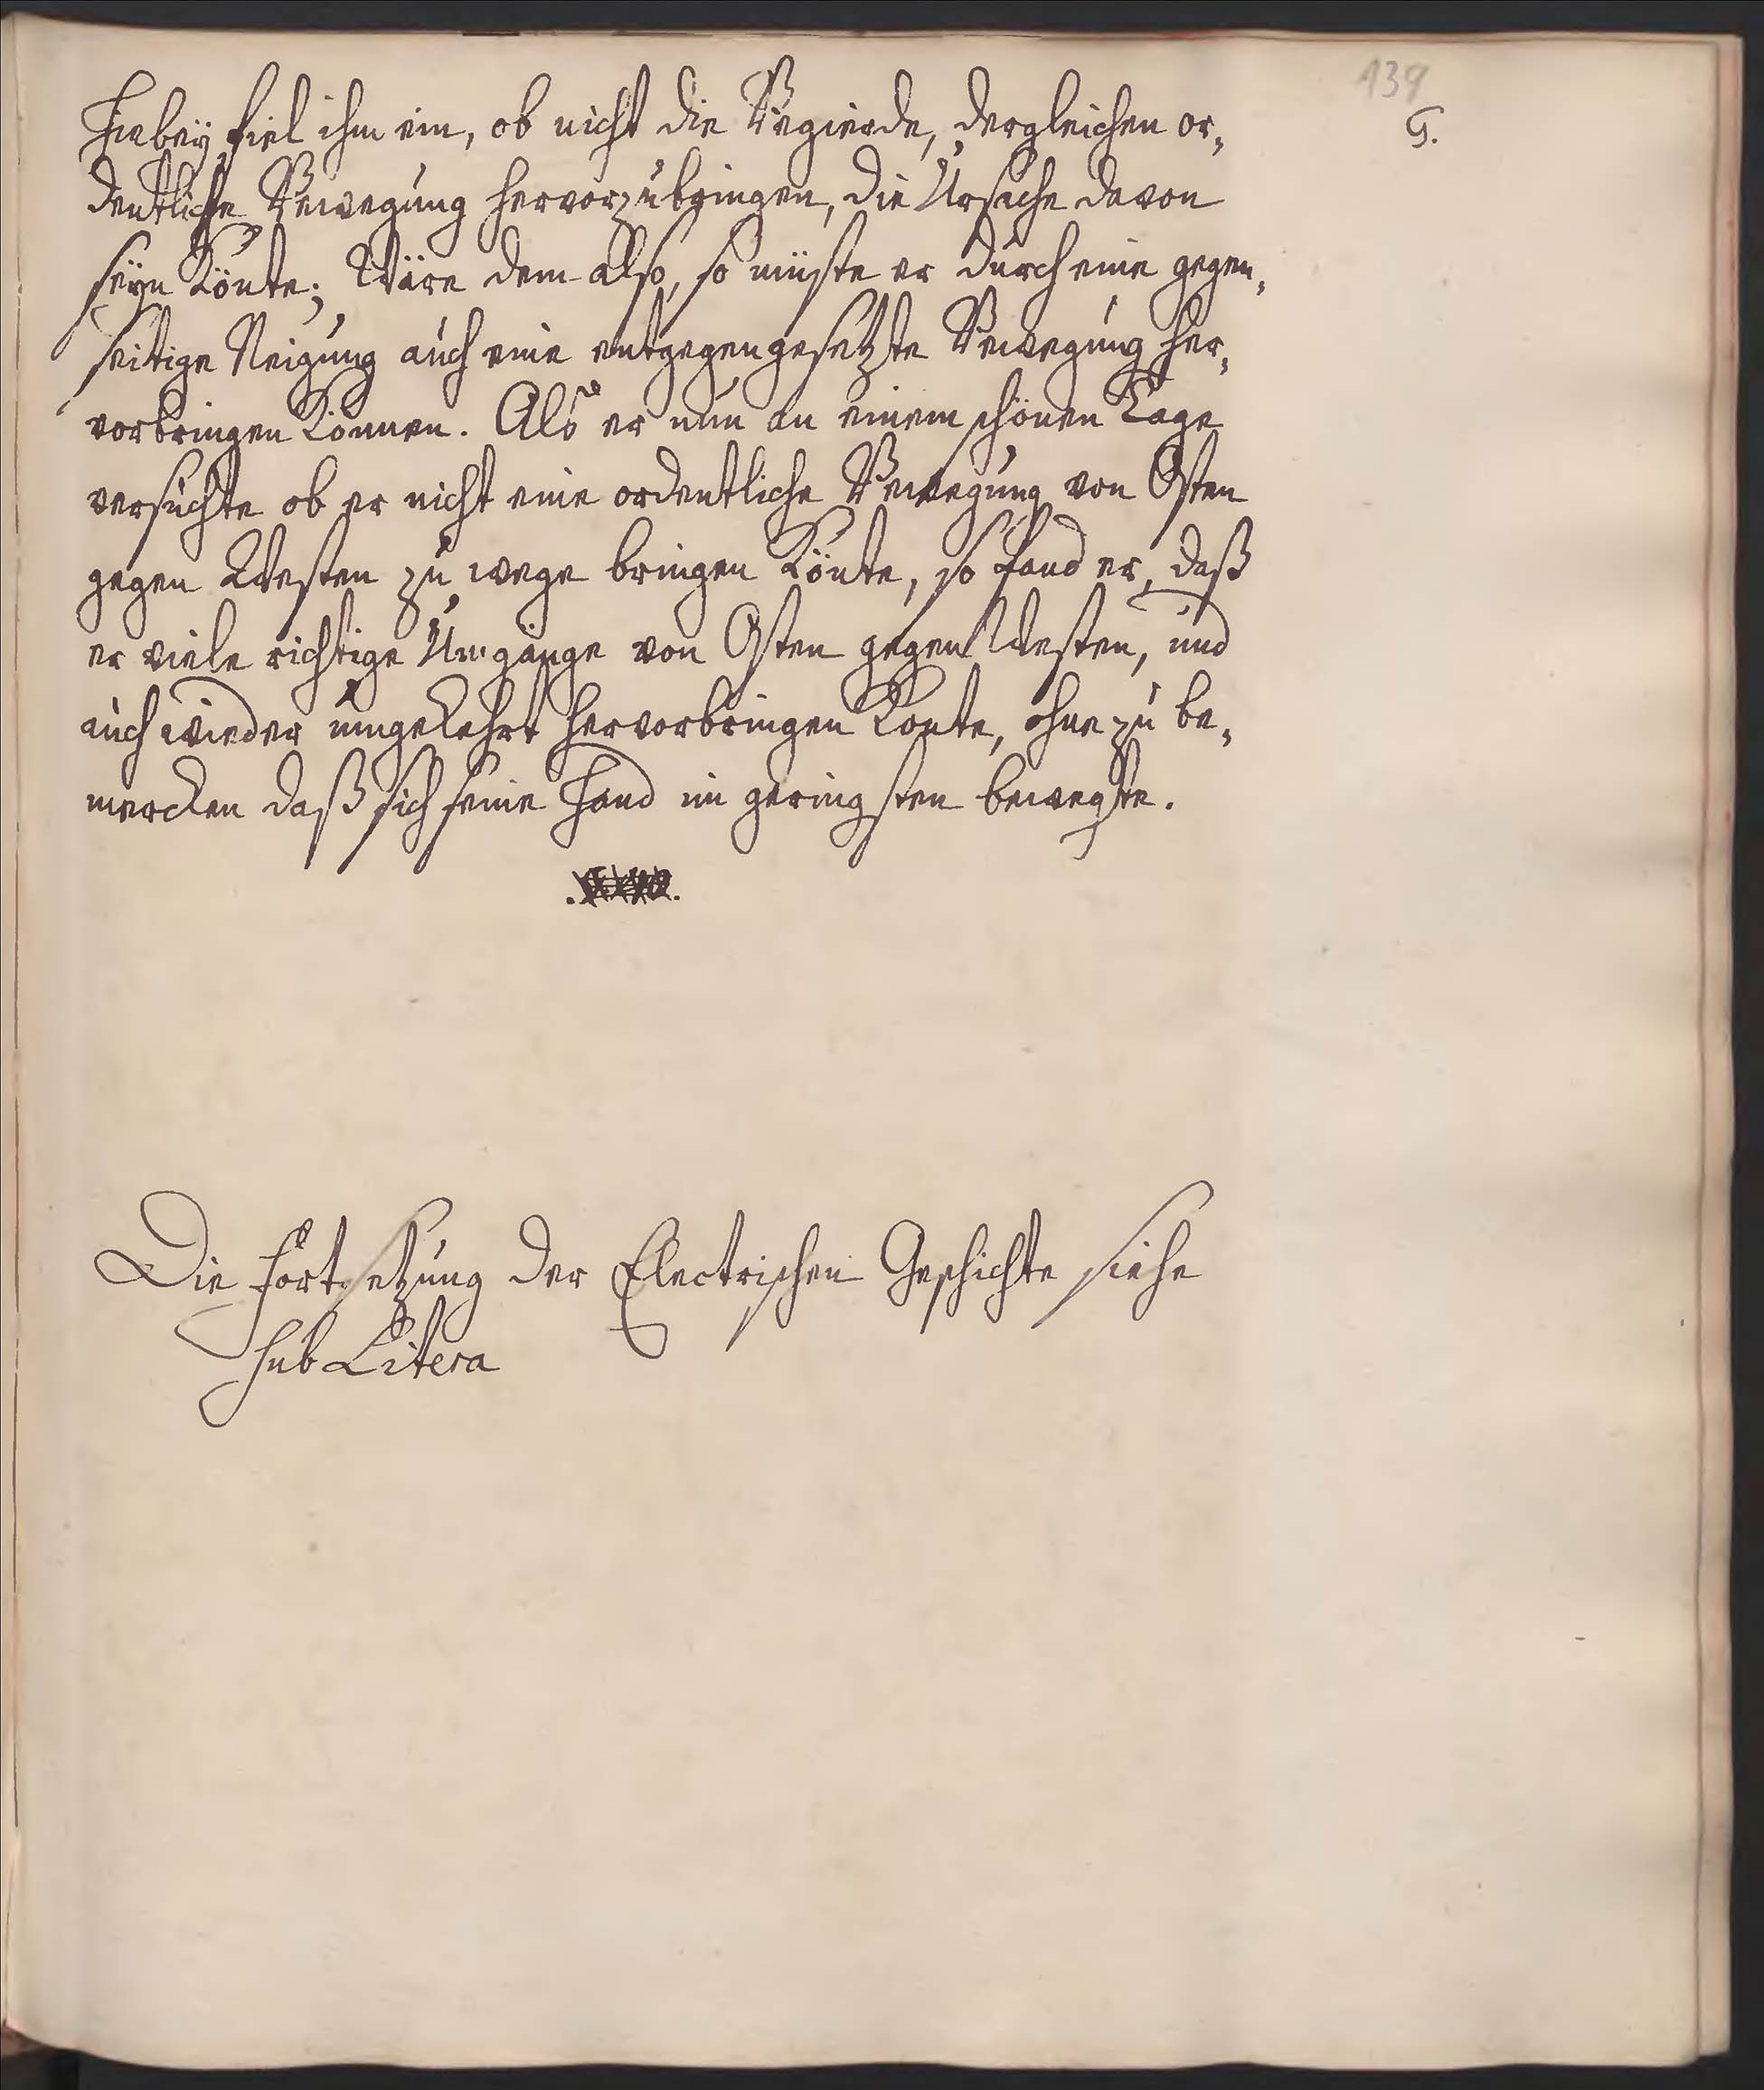 139
G.
Hiebey fiel ihm ein, ob nicht die Begierde, dergleichen or„
dentliche Bewegung hervorzubringen, die Ursache davon
seyn Könte; Wäre dem also, so müste er durch eine gegen„
seitige Neigung auch eine entgegengesetzte Bewegung her„
vorbringen Können. Als er nun an einem schönen Tage
versuchte ob er nicht eine ordentliche Bewegung von Osten
gegen Westen zu wege bringen Könte, so fand er, daß
er viele richtige Umgänge von Osten gegen Westen, und
auch wieder umgekehrt hervorbringen Konte, ohne zu be„
mercken daß sich seine Hand im geringsten bewegte.
Die Fortsetzung der Electrischen Geschichte siehe
sub Litera